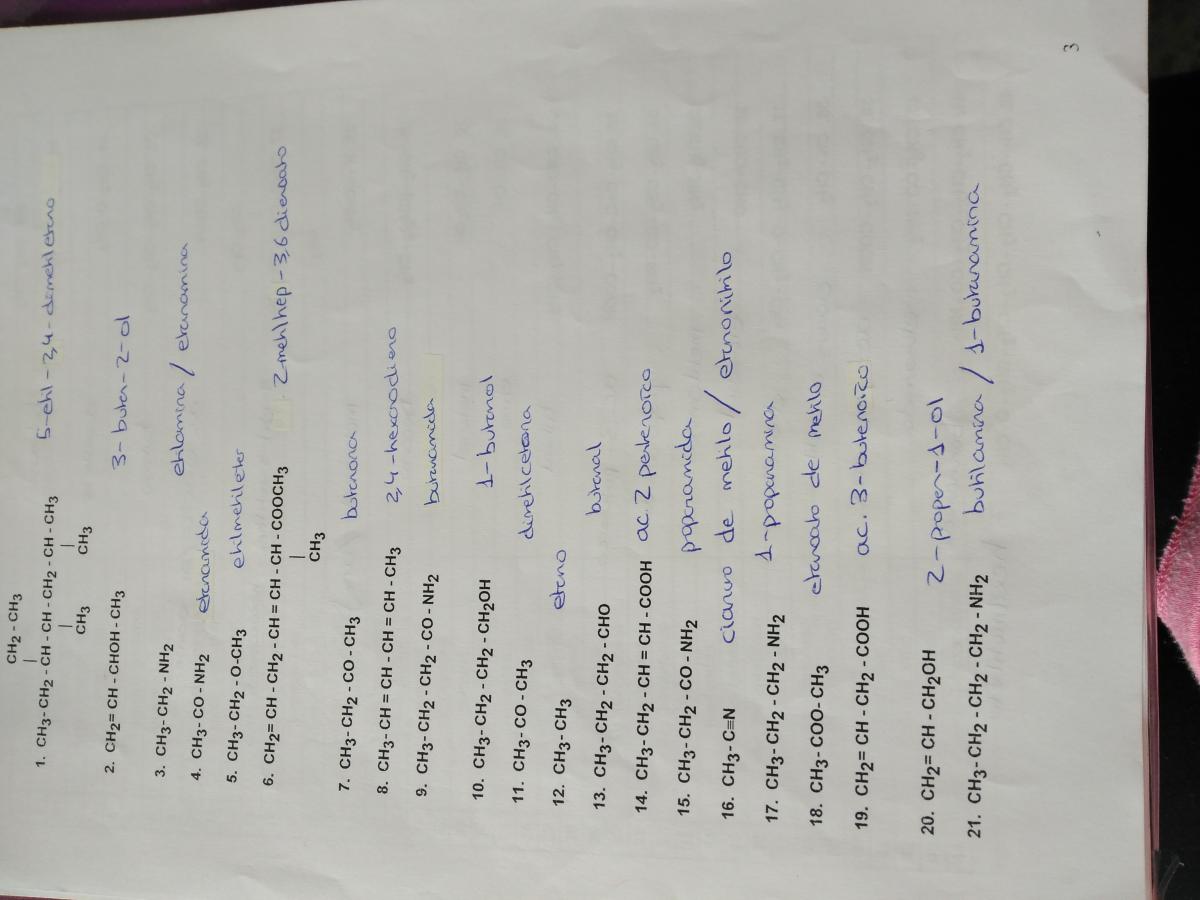 CH₂ - CH₃
|
1. CH₃- CH₂ - CH - CH - CH₂ - CH - CH₃ 5-etil-2,4-dimetiletano
| |
CH₃ CH₃
2. CH₂= CH - CHOH - CH₃ 3-buten-2-ol
3. CH₃- CH₂ - NH₂ etilamina / etanamina
4. CH₃- CO - NH₂ etanamida
5. CH₃- CH₂ - O-CH₃ etilmetileter
6. CH₂= CH - CH₂ - CH = CH - CH - COOCH₃ 2 metilhep-3,6 dienoato
|
CH₃
7. CH₃- CH₂ - CO - CH₃ butanona
8. CH₃- CH = CH - CH = CH - CH₃ 2,4-hexanodieno
9. CH₃- CH₂ - CH₂ - CO - NH₂ butanamida
10. CH₃- CH₂ - CH₂ - CH₂OH 1-butanol
11. CH₃- CO - CH₃ dimetilcetona
12. CH₃- CH₃ etano
13. CH₃- CH₂ - CH₂ - CHO butanal
14. CH₃- CH₂ - CH = CH - COOH ac. 2 pentenoico
15. CH₃- CH₂ - CO - NH₂ popanamida
16. CH₃- C≡N cianuro de metilo / etanonitrilo
17. CH₃- CH₂ - CH₂ - NH₂ 1-popanamina
18. CH₃- COO - CH₃ etanoato de metilo
19. CH₂= CH - CH₂ - COOH ac. 3-butenoico
20. CH₂= CH - CH₂OH 2-propen-1-ol
21. CH₃- CH₂ - CH₂ - CH₂ - NH₂ butilamina / 1-butanamina
3